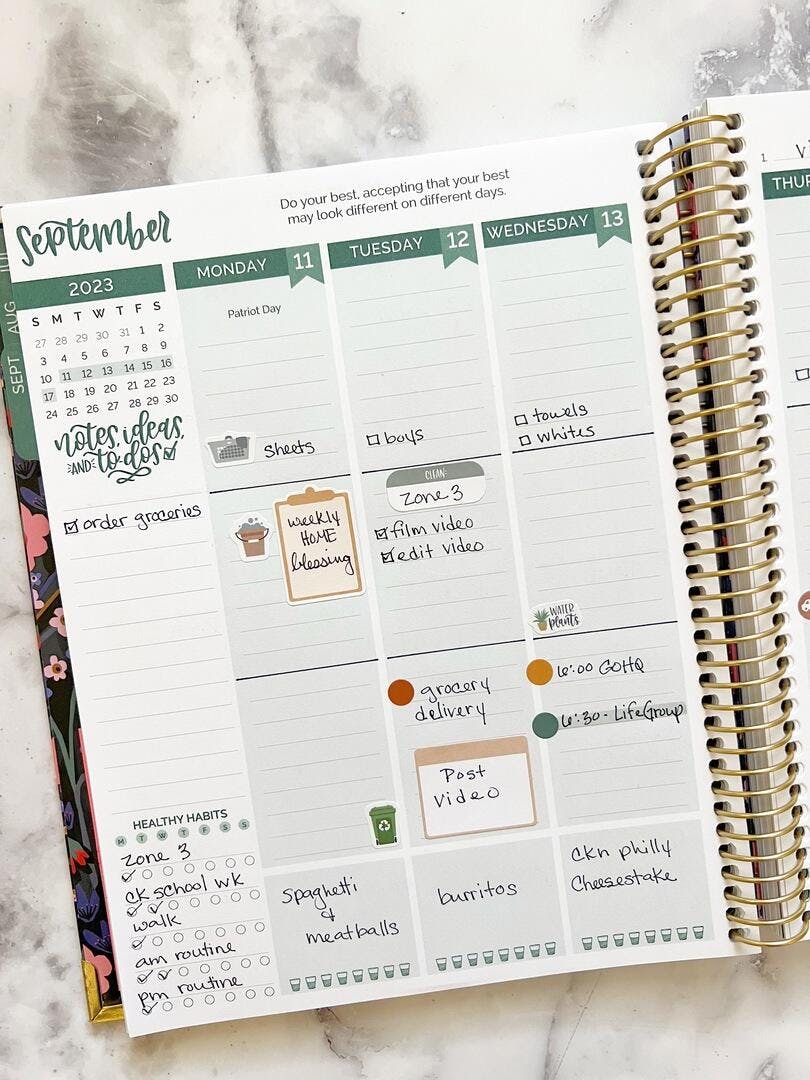 Do your best, accepting that your best
may look different on different days.
September
2023
S M T W T F S
27 28 29 30 31 1 2
3 4 5 6 7 8 9
10 11 12 13 14 15 16
17 18 19 20 21 22 23
24 25 26 27 28 29 30
SEPT AUG
notes, ideas,
AND to-dos
order groceries
HEALTHY HABITS
M T W T F S S
zone 3
ck school wk
walk
am routine
pm routine
MONDAY 11
Patriot Day
sheets
weekly
HOME
blessing
spaghetti
&
meatballs
TUESDAY 12
boys
CLEAN:
zone 3
film video
edit video
grocery
delivery
Post
video
burritos
WEDNESDAY 13
towels
whites
WATER
plants
6:00 GOHQ
6:30 - LifeGroup
ckn philly
cheesestake
1.
THUR